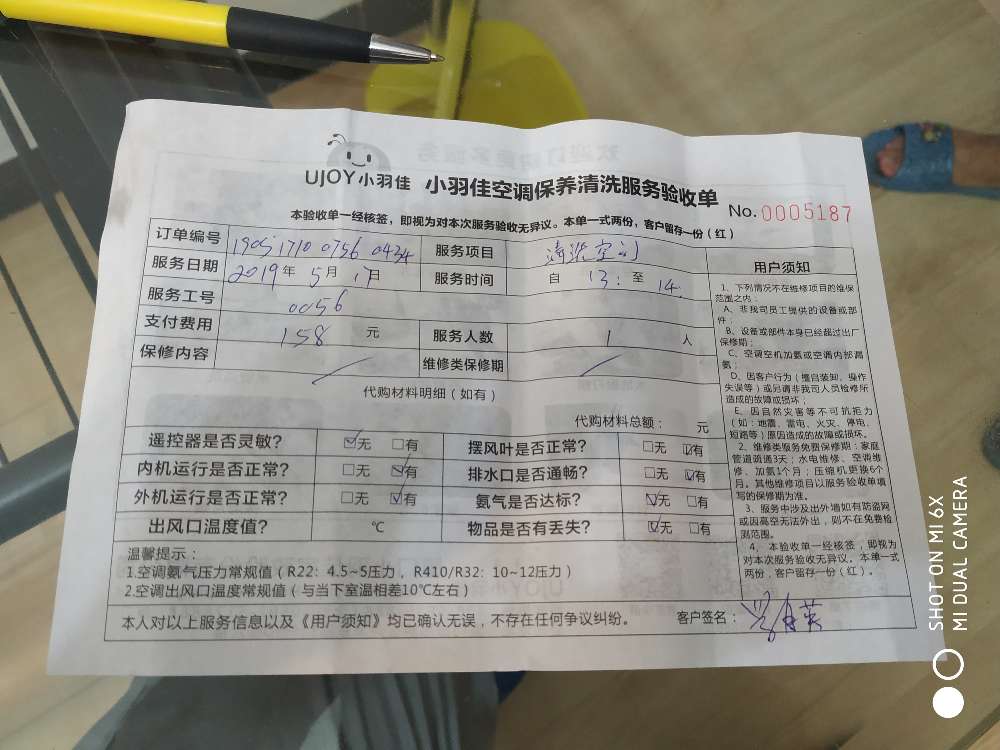 UJOY小羽佳 小羽佳空调保养清洗服务验收单
No. 0005187
本验收单一经核签，即视为对本次服务验收无异议。本单一式两份，客户留存一份（红）
订单编号 19051710 0756 0434 服务项目 清洗空调
服务日期 2019年 5月 17日 服务时间 自 13: 至 14:
服务工号 0056
支付费用 158 元 服务人数 1 人
保修内容 / 维修类保修期 /
代购材料明细（如有）
代购材料总额： 元
遥控器是否灵敏? ☑无 □有 摆风叶是否正常? □无 ☑有
内机运行是否正常? □无 ☑有 排水口是否通畅? □无 ☑有
外机运行是否正常? □无 ☑有 氨气是否达标? ☑无 □有
出风口温度值? ℃ 物品是否有丢失? ☑无 □有
温馨提示：
1.空调氨气压力常规值（R22：4.5~5压力，R410/R32：10~12压力）
2.空调出风口温度常规值（与当下室温相差10℃左右）
本人对以上服务信息以及《用户须知》均已确认无误，不存在任何争议纠纷。 客户签名：
用户须知
1、下列情况不在维修项目的维保
范围之内：
A、非我司员工提供的设备或部
件；
B、设备或部件本身已经超过出厂
保修期；
C、空调空机加氨或空调内部漏
氨；
D、因客户行为（擅自装卸、操作
失误等）或另请非我司人员检修所
造成的故障或损坏；
E、因自然灾害等不可抗拒力
（如：地震、雷电、火灾、停电、
短路等）原因造成的故障或损坏。
2、维修类服务免费保修期：家庭
管道疏通3天；水电维修、空调维
修、加氨1个月；压缩机更换6个
月。其他维修项目以服务验收单填
写的保修期为准。
3、服务中涉及出外墙如有防盗网
或因高空无法外出，则不在免费检
测范围。
4、本验收单一经核签，即视为
对本次服务验收无异议。本单一式
两份，客户留存一份（红）。
SHOT ON MI 6X
MI DUAL CAMERA